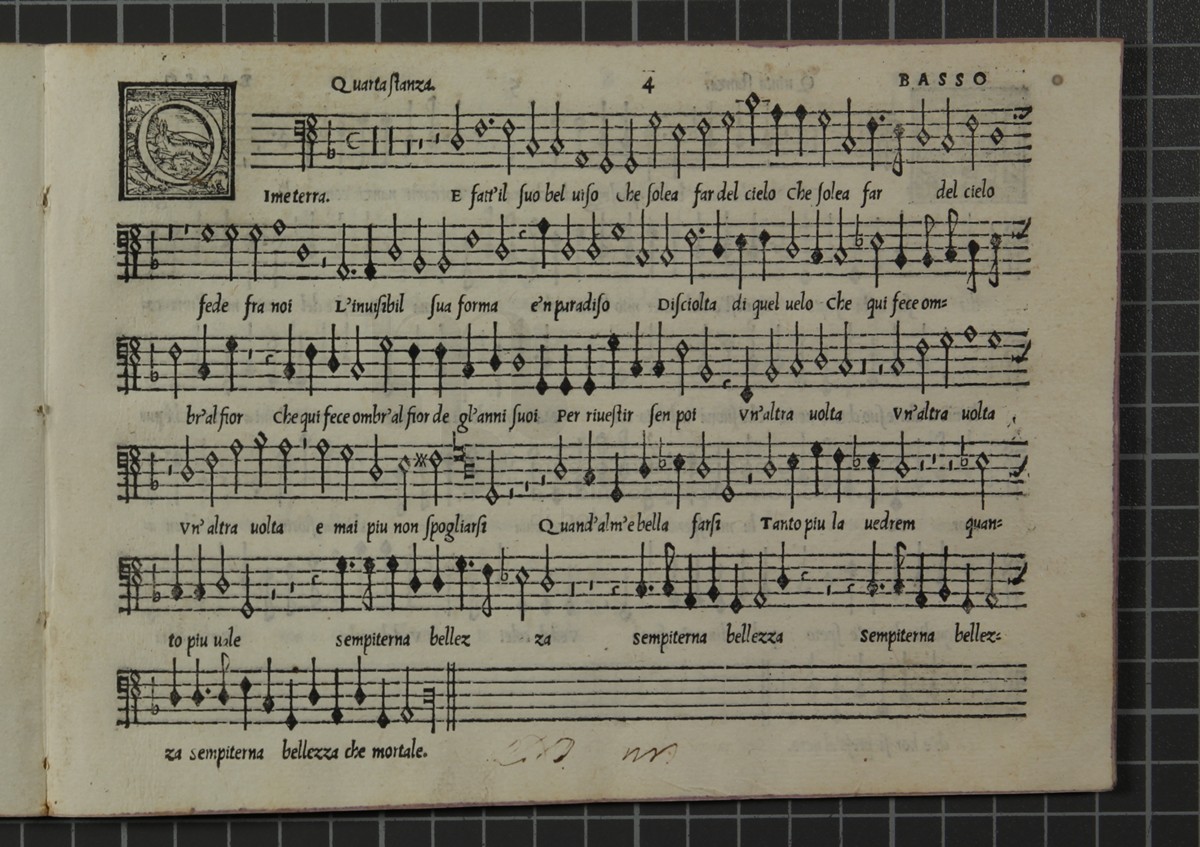 Quarta stanza. 4 BASSO
O Ime terra. E fatt'il suo bel uiso Che solea far del cielo Che solea far del cielo
fede fra noi L'inuisibil sua forma e'n paradiso Disciolta di quel uelo Che qui fece om=
br'al fior Che qui fece ombr'al fior de gl'anni suoi Per riuestir sen poi Vn'altra uolta Vn'altra uolta
Vn'altra uolta e mai piu non spogliarsi Quand'alm'e bella farsi Tanto piu la uedrem quan=
to piu uale sempiterna bellez za sempiterna bellezza sempiterna bellez=
za sempiterna bellezza che mortale.